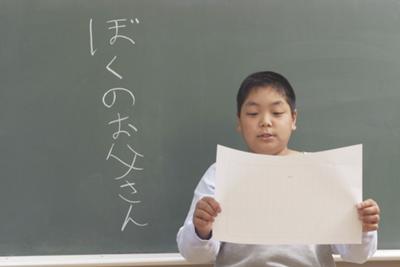 ぼくのお父さん